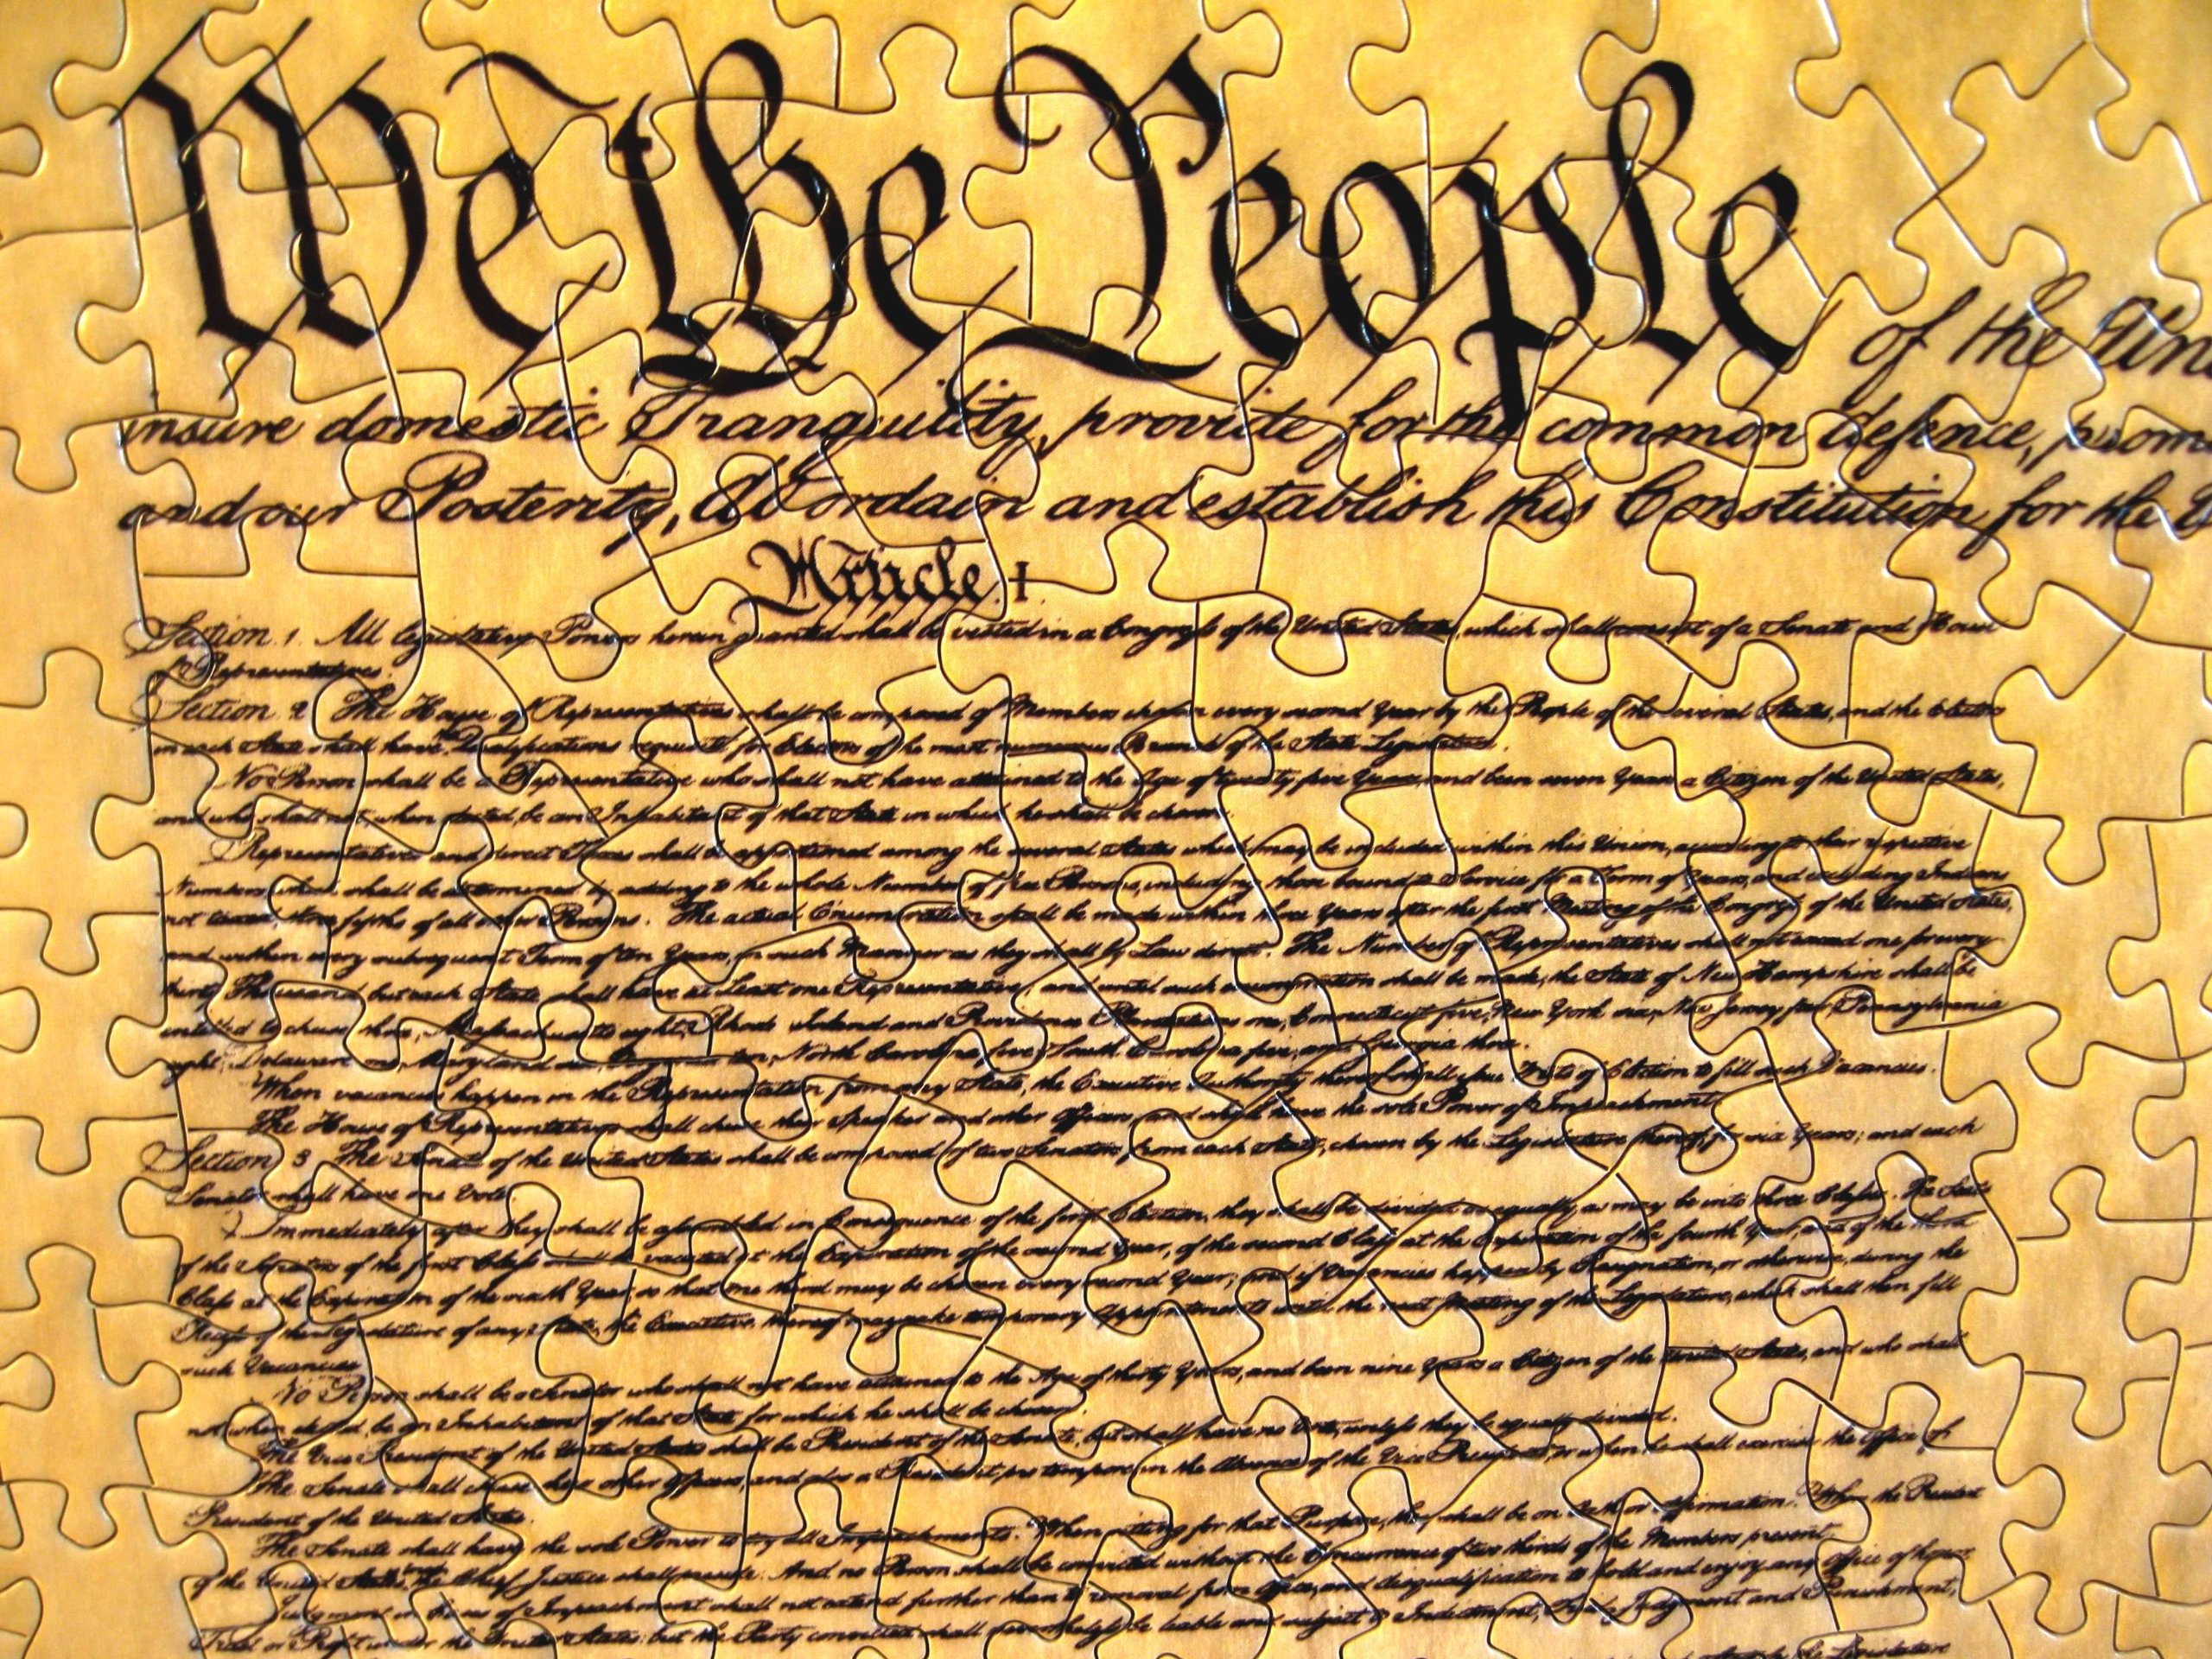 We the People of the Un
insure domestic Tranquility, provide for the common defence, prom
and our Posterity, do ordain and establish this Constitution for the U
Article. I.
Section. 1. All legislative Powers herein granted shall be vested in a Congress of the United States, which shall consist of a Senate and House
of Representatives.
Section. 2. The House of Representatives shall be composed of Members chosen every second Year by the People of the several States, and the Electors
in each State shall have Qualifications requisite for Electors of the most numerous Branch of the State Legislature.
No Person shall be a Representative who shall not have attained to the Age of twenty five Years, and been seven Years a Citizen of the United States,
and who shall not, when elected, be an Inhabitant of that State in which he shall be chosen.
Representatives and direct Taxes shall be apportioned among the several States which may be included within this Union, according to their respective
Numbers, which shall be determined by adding to the whole Number of free Persons, including those bound to Service for a Term of Years, and excluding Indians
not taxed, three fifths of all other Persons. The actual Enumeration shall be made within three Years after the first Meeting of the Congress of the United States,
and within every subsequent Term of ten Years, in such Manner as they shall by Law direct. The Number of Representatives shall not exceed one for every
thirty Thousand, but each State shall have at Least one Representative; and until such enumeration shall be made, the State of New Hampshire shall be
entitled to chuse three, Massachusetts eight, Rhode Island and Providence Plantations one, Connecticut five, New York six, New Jersey four, Pennsylvania
eight, Delaware one, Maryland six, Virginia ten, North Carolina five, South Carolina five, and Georgia three.
When vacancies happen in the Representation from any State, the Executive Authority thereof shall issue Writs of Election to fill such Vacancies.
The House of Representatives shall chuse their Speaker and other Officers; and shall have the sole Power of Impeachment.
Section. 3. The Senate of the United States shall be composed of two Senators from each State, chosen by the Legislature thereof, for six Years; and each
Senator shall have one Vote.
Immediately after they shall be assembled in Consequence of the first Election, they shall be divided as equally as may be into three Classes. The Seats
of the Senators of the first Class shall be vacated at the Expiration of the second Year, of the second Class at the Expiration of the fourth Year, and of the third
Class at the Expiration of the sixth Year, so that one third may be chosen every second Year; and if Vacancies happen by Resignation, or otherwise, during the
Recess of the Legislature of any State, the Executive thereof may make temporary Appointments until the next Meeting of the Legislature, which shall then fill
such Vacancies.
No Person shall be a Senator who shall not have attained to the Age of thirty Years, and been nine Years a Citizen of the United States, and who shall
not, when elected, be an Inhabitant of that State for which he shall be chosen.
The Vice President of the United States shall be President of the Senate, but shall have no Vote, unless they be equally divided.
The Senate shall chuse their other Officers, and also a President pro tempore, in the Absence of the Vice President, or when he shall exercise the Office of
President of the United States.
The Senate shall have the sole Power to try all Impeachments. When sitting for that Purpose, they shall be on Oath or Affirmation. When the President
of the United States, the Chief Justice shall preside: And no Person shall be convicted without the Concurrence of two thirds of the Members present.
Judgment in Cases of Impeachment shall not extend further than to removal from Office, and disqualification to hold and enjoy any Office of honor
Trust or Profit under the United States: but the Party convicted shall nevertheless be liable and subject to Indictment, Trial, Judgment and Punishment,
Legislature